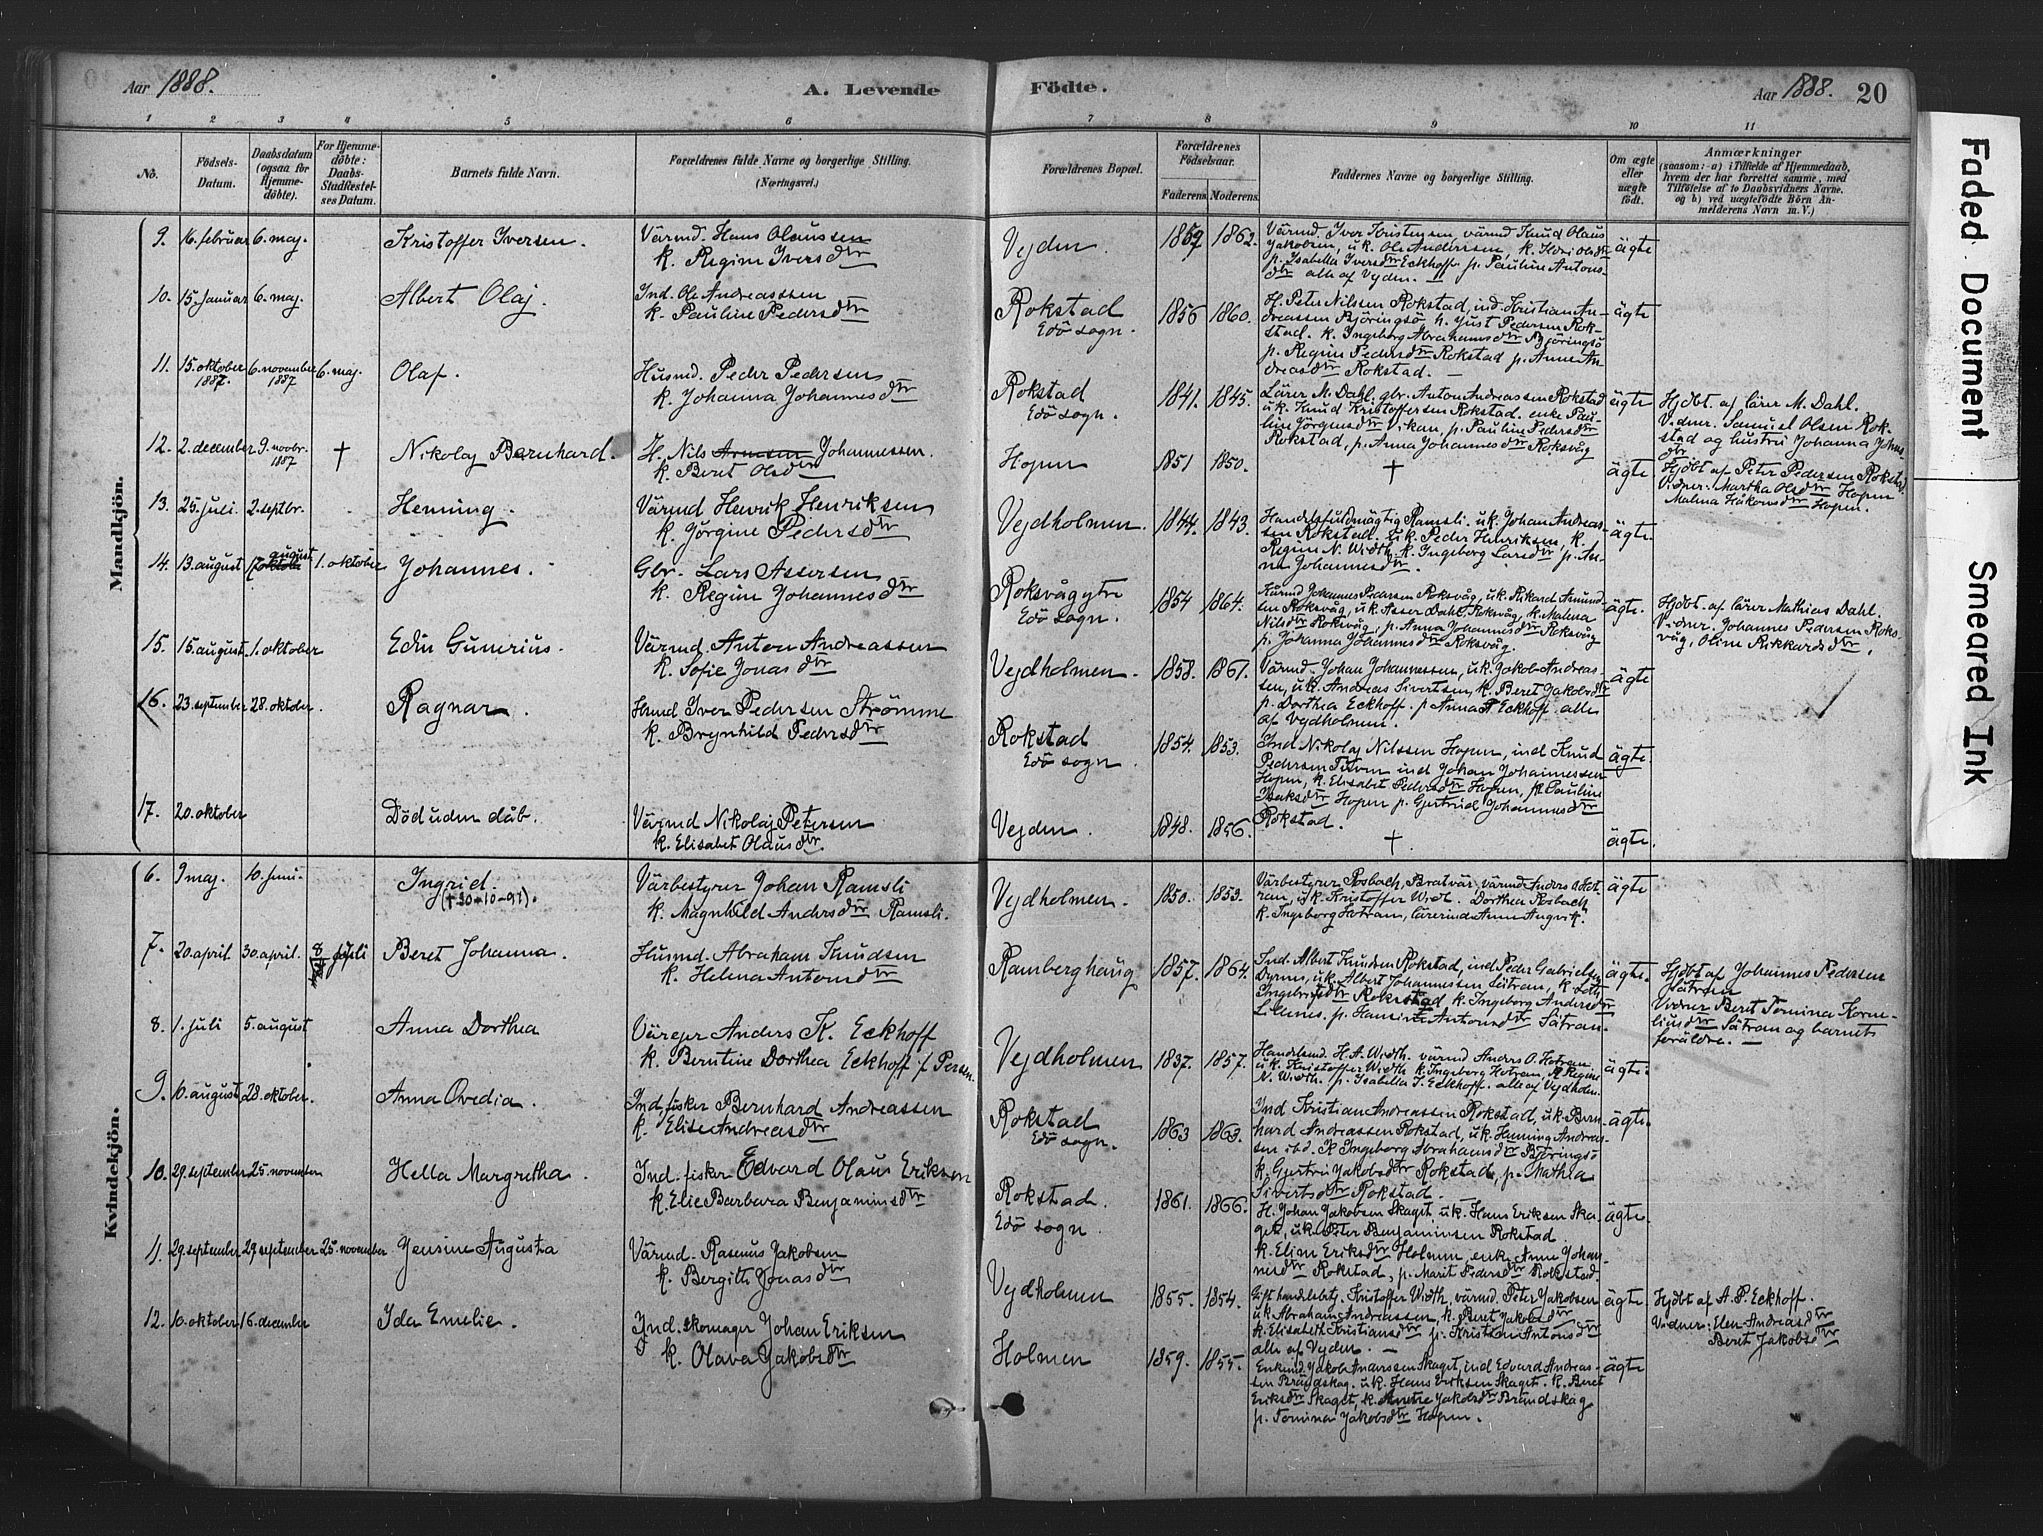 Aar 1888. A. Levende Födte. Aar 1888. 20
1 2 3 4 5 6 7 8 9 10 11
No.
Födsels-Datum.
Daabsdatum (ogsaa for Hjemmedöbte).
For Hjemmedöbte: Daabs-Stadfæstelses Datum.
Barnets fulde Navn.
Forældrenes fulde Navne og borgerlige Stilling. (Næringsvei.)
Forældrenes Bopæl.
Forældrenes Födselsaar. Faderens. Moderens.
Faddernes Navne og borgerlige Stilling.
Om ægte eller uægte födt.
Anmærkninger
(saasom: a) i Tilfælde af Hjemmedaab,
hvem der har forrettet samme, med
Tilföielse af to Daabsvidners Navne.
og b) ved uægtefödte Börn An-
melderens Navn m. V.)
Mandkjön.
9. 16. februar 6. maj. Kristoffer Iversen. Värmd. Hans Olaussen
k. Regine Iversdtr
Vejden. 1859 1862. Värmd. Iver Kristensen, värmd Knud Olaus
Jakobsen, u.k. Ole Andersen, k.
p. Isabella Iversdtr Eckhoff. p. Pauline Antons-
dtr alle af Vejden.
ägte
10. 15. januar 6. maj. Albert Olaj. Ind. Ole Andreassen
k. Pauline Pedersdtr
Rokstad
Edö sogn.
1856 1860. H. Peter Nilssen Rokstad, ind. Kristian An-
dreassen Björingsö h. Just Pedersen Rok-
stad. k. Ingeborg Abrahamsdtr Björingsö
p. Regine Pedersdtr Rokstad p. Anne An-
dreasdtr Rokstad.
ägte
11. 15. oktober 1887. 6. november 1887 6. maj. Olaf. Husmd. Peder Pedersen
k. Johanna Johannesdtr
Rokstad
Edö sogn.
1841. 1845. Lärer M. Dahl, gbr. Anton Andreassen Rokstad
u.k. Knud Kristoffersen Rokstad. enke Pau-
line Jörgensdtr Vikan, p. Pauline Pedersdtr
Rokstad, p. Anna Johannesdtr Roksvåg
ägte Hjdbt. af lärer M. Dahl.
Vidner. Samuel Olsen Rok-
stad og hustru Johanna Johns
dtr
12. 2. december 9. novbr. 1887 † Nikolaj Bernhard. H. Nils Johannessen.
k. Beret Olsdtr
Hopen 1851 1850. † ägte Hjdbt af Peter Pedersen Rokstad.
Vidner. Martha Olsdtr Hopen
Malena Håkonsdtr Hopen.
13. 25. juli 2. septbr. Henning. Värmd Henrik Henriksen
k. Jörgine Pedersdtr
Vejdholmen. 1844. 1843. Handelsfuldmägtig Ramsli. u.k. Johan Andreas-
sen Rokstad. u.k. Peder Henriksen, k.
Regine N. Width, k. Ingeborg Larsdtr p. An-
na Johannesdtr.
ägte.
14. 13. august august 1. oktober Johannes. Gbr. Lars Assersen
k. Regine Johannesdtr
Roksvågytre
Edö sogn.
1854 1864. Husmd Johannes Pedersen Roksvåg, u.k. Rikard Amund-
sen Roksvåg, u.k. Asser Dahl Roksvåg, k. Malena
Nilsdtr Roksvåg, p. Anna Johannesdtr Roksvåg
p. Johanna Johannesdtr Roksvåg.
ägte. Hjdbt. af lärer Mathias Dahl.
Vidner. Johannes Pedersen Roks-
våg, Oline Rikkardsdtr.
15. 15. august. 1. oktober Edin Gunerius. Värmd. Anton Andreassen
k. Sofie Jonasdtr
Vejdholmen. 1858. 1861. Värmd. Johan Johannessen, u.k. Jakob Andreas-
sen, u.k. Andreas Sivertsen, k. Beret Jakobsdtr
p. Dorthea Eckhoff. p Anna P Eckhoff. alle
af Vejdholmen.
ägte
16. 23. september 28. oktober. Ragnar. Husmd Iver Pedersen Strømme
k. Brynhild Pedersdtr
Rokstad
Edö sogn.
1854. 1853. Ind Nikolaj Nilssen Hopen, ind Knud
Pedersen ind Johan Johannessen
Hopen, k. Elisabet Pedersdtr Hopen, p. Pauline
Isaksdtr Hopen p. Gertrud Johannesdtr
Rokstad.
ägte.
17. 20. oktober Död uden dåb. Värmd Nikolaj Petersen
k. Elisabet Olausdtr.
Vejden. 1848. 1856. †. ägte.
Kvindekjön.
6. 9 maj. 10. juni. Ingrid.
(†30-10-91).
Värbestyrer Johan Ramsli
k. Magnhild Andersdtr Ramsli.
Vejdholmen. 1850. 1853. Värbestyrer Rosbach, Bratvär, värmd. Anders Hot-
ran, u.k. Kristoffer Widt. Dorthea Rosbach
k. Ingeborg Hotran, lärerinde Anna Angvik.
ägte
7. 20. april 30. april. 8 juli Beret Johanna. Husmd. Abraham Knudsen
k. Helena Antonsdtr
Ramberghaug 1857. 1864. Ind. Albert Knudsen Rokstad, ind Peder Gabrielsen
Dyrnes, u.k. Albert Johannesen Sätran, k.
Ingebrigtsdtr Rokstad k. Ingeborg Andersdtr
p. Hansine Antonsdtr Sätran.
ägte. Hjdbt af Johannes Pedersen
Sätran
Vidner Beret Tomina Korne-
liusdtr Sätran og barnets
foräldre.
8. 1. juli 5. august Anna Dorthea Värejer Anders K. Eckhoff
k. Berntine Dorthea Eckhoff f Persen.
Vejdholmen 1837. 1857. Handelsmd. H. A. Width. värmd Anders O. Hotran
u.k. Kristoffer Width k. Ingeborg Hotran, k Regine
N. Width. p. Isabella I. Eckhoff. alle af Vejdholm.
ägte.
9. 10. august 28. oktober. Anna Ovedia. Ind. fisker Bernhard Andreassen
k. Elise Andreasdtr
Rokstad
Edö sogn.
1863 1863. Ind Kristian Andreassen Rokstad, u.k. Bern-
hard Andreassen Rokstad, u.k. Henning Andreas-
sen ibd. k Ingeborg Abrahamsdtr Björingsö
k. Gjertru Jakobsdtr Rokstad, p. Mathea
Sivertsdtr Rokstad.
ägte.
10. 29. september 25. november Hella Margretha. Ind. fisker Edvard Olaus Eriksen
k. Elie Barbara Benjaminsdtr
Rokstad.
Edö sogn.
1861. 1866. H. Johan Jakobsen Skaget u.k. Hans Eriksen Ska-
get, u.k. Peter Benjaminsen Rokstad.
k. Eline Eriksdtr Holmen, enke Anne Johan-
nesdtr Rokstad, p. Marit Pedersdtr Rokstad.
ägte.
11. 29. september 29. september 25. november Jensine Augusta Värmd. Rasmus Jakobsen
k. Bergith Jonasdtr
Vejdholmen 1855. 1854. Gifthandelsbtj. Kristoffer Width, värmd. Peter Jakobsen
u.k. Abraham Andreassen, k. Beret Jakobsdtr
k. Elisabeth Kristiansdtr p. Kristine Antonsdtr
alle af Vejden.
ägte Hjdbt af A. P. Eckhoff.
Vidner: Elen Andreasdtr
Beret Jakobsdtr
12. 10. oktober 16. december Ida Emelie. Ind. skomager Johan Eriksen
k. Olava Jakobsdtr
Holmen 1859. 1855. Enkemd. Jakob Anderssen Skaget, ind Edvard Andreas-
sen Brandskag. u.k. Hans Eriksen Skaget. k. Beret
Eriksdtr Skaget, k. Anne Jakobsdtr Brandskag
p. Tomina Jakobsdtr Hopen.
ägte
Faded Document
Smeared Ink